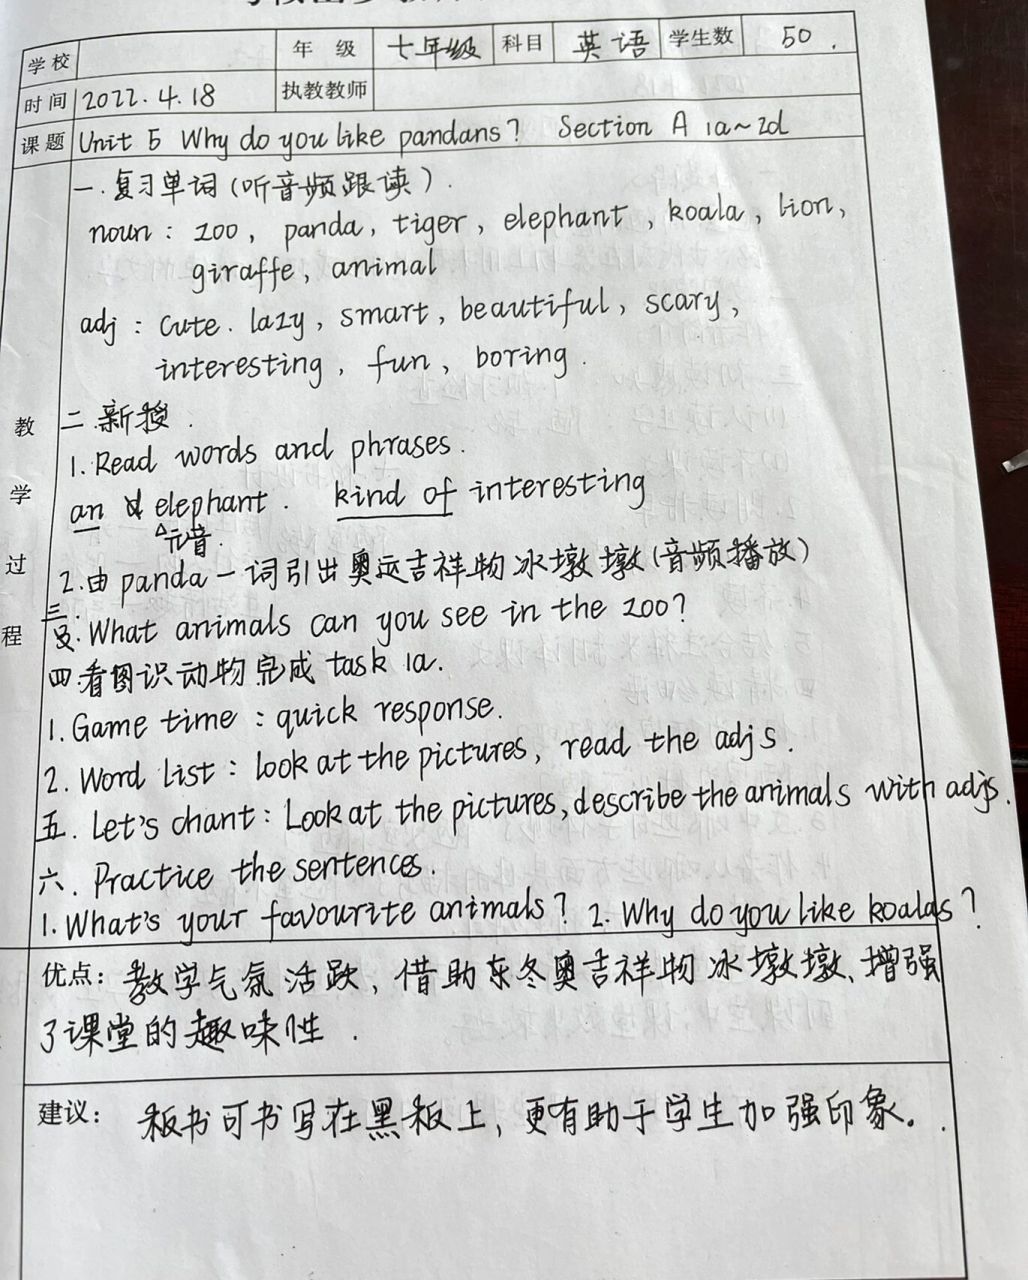 学校 年级 七年级 科目 英语 学生数 50.
时间 2022.4.18 执教教师
课题 Unit 5 Why do you like pandans? Section A 1a~2d
一.复习单词(听音频跟读).
noun: zoo, panda, tiger, elephant, koala, lion,
giraffe, animal
adj: cute. lazy, smart, beautiful, scary,
interesting, fun, boring.
教学过程
二.新授.
1.Read words and phrases.
an elephant. kind of interesting
元音.
2.由panda一词引出奥运吉祥物冰墩墩(音频播放)
三.What animals can you see in the zoo?
四.看图识动物完成task 1a.
1.Game time: quick response.
2. Word List: look at the pictures, read the adjs.
五. Let's chant: Look at the pictures, describe the animals with adjs.
六. Practice the sentences.
1.What's your favourite animals? 2. Why do you like koalas?
优点: 教学气氛活跃, 借助东冬奥吉祥物冰墩墩、增强
了课堂的趣味性.
建议: 板书可书写在黑板上, 更有助于学生加强印象。